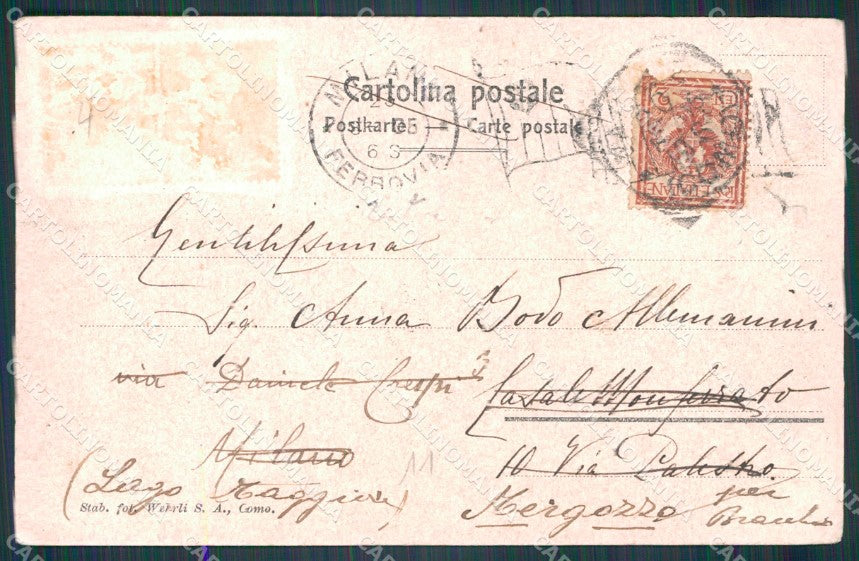 Cartolina postale
Postkarte — Carte postale
MILANO
FERROVIA
Gentilissima
Sig. Anna Bodo Allemannini
via Daniele Crespi
Casale Monferrato
Milano
10 Via Palestro
11
(Lago Maggiore)
Mergozzo per
Stab. fot. Wehrli S. A., Como.
CARTOLINOMANIA